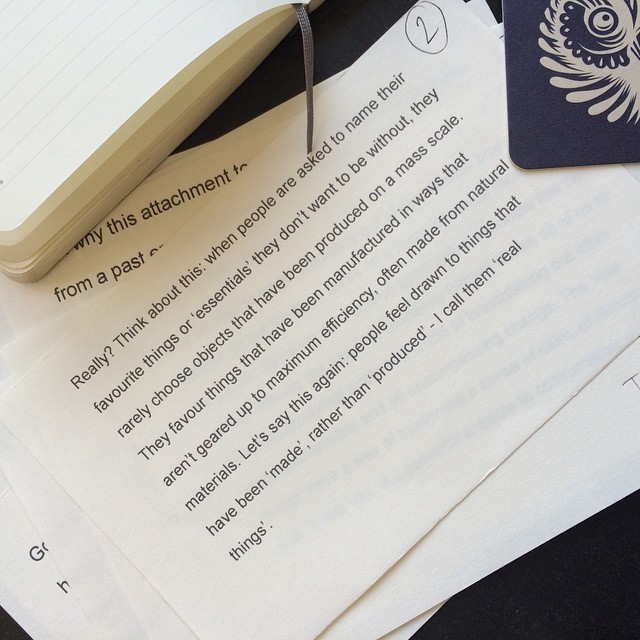 2
why this attachment to
from a past
Really? Think about this: when people are asked to name their
favourite things or ‘essentials’ they don’t want to be without, they
rarely choose objects that have been produced on a mass scale.
They favour things that have been manufactured in ways that
aren’t geared up to maximum efficiency, often made from natural
materials. Let’s say this again: people feel drawn to things that
have been ‘made’, rather than ‘produced’ - I call them ‘real
things’.